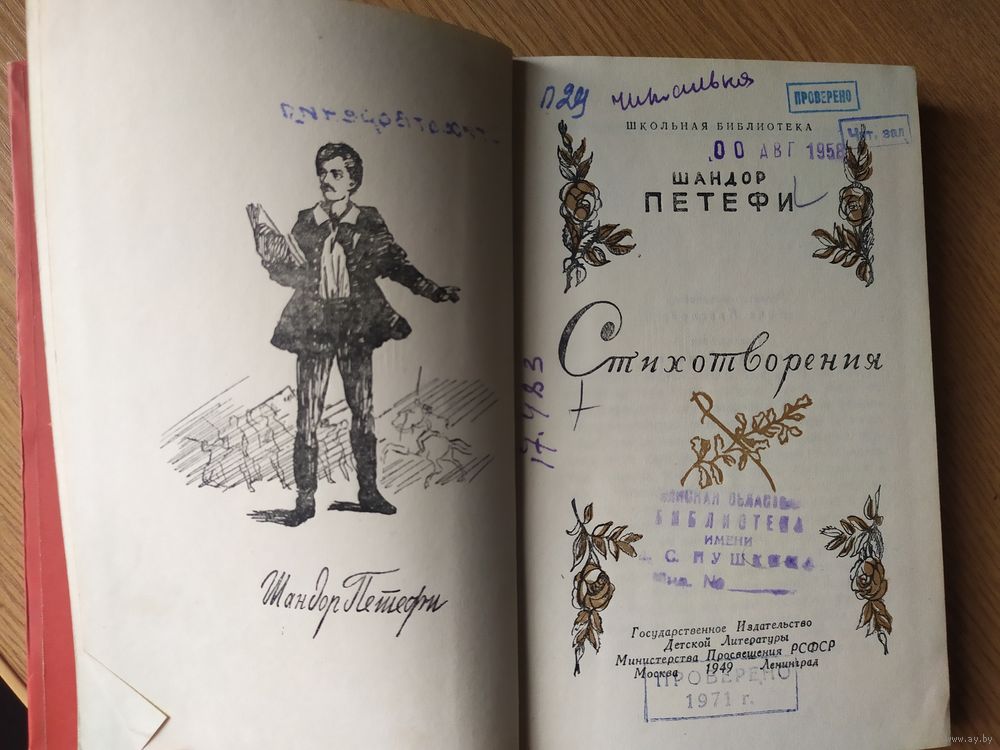 Шандор Петефи
П 24
ПРОВЕРЕНО
Чит. зал
ШКОЛЬНАЯ БИБЛИОТЕКА
00 АВГ 1958
ШАНДОР
ПЕТЕФИ
Стихотворения
17.483
БИБЛИОТЕКА
ИМЕНИ
С. ПУШКИНА
Инв. №
Государственное Издательство
Детской Литературы
Министерства Просвещения РСФСР
Москва 1949 Ленинград
ПРОВЕРЕНО
1971 г.
www.ay.by